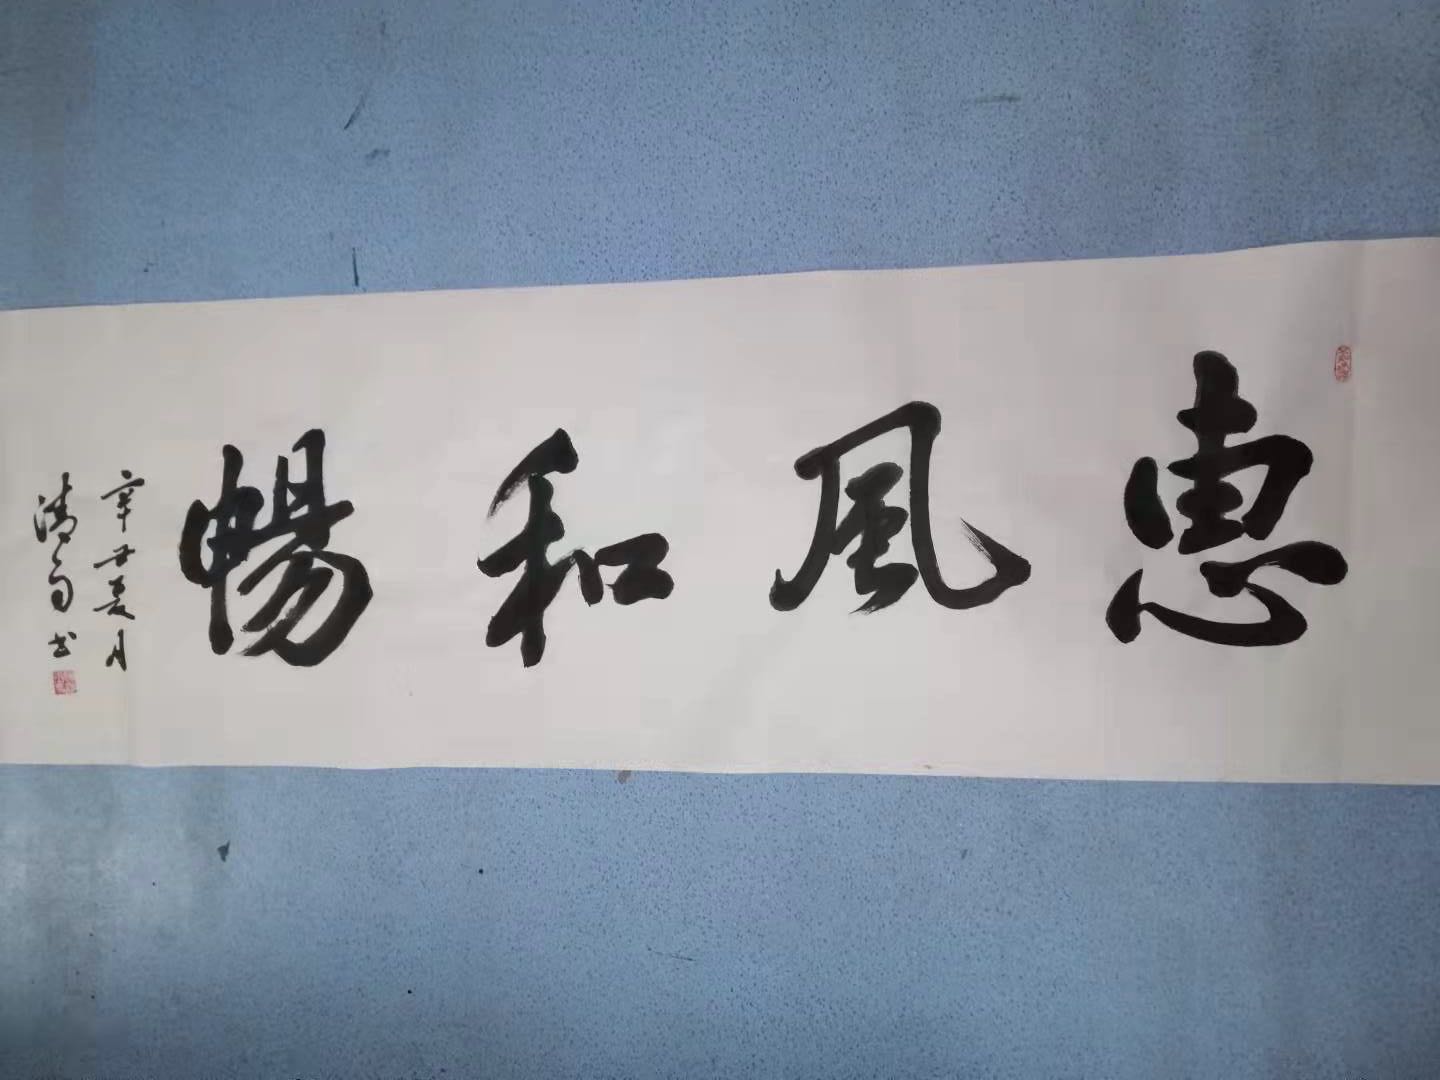 惠風和暢
辛丑夏月
清 书